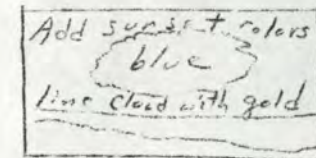 Add sunset colors
blue
line cloud with gold